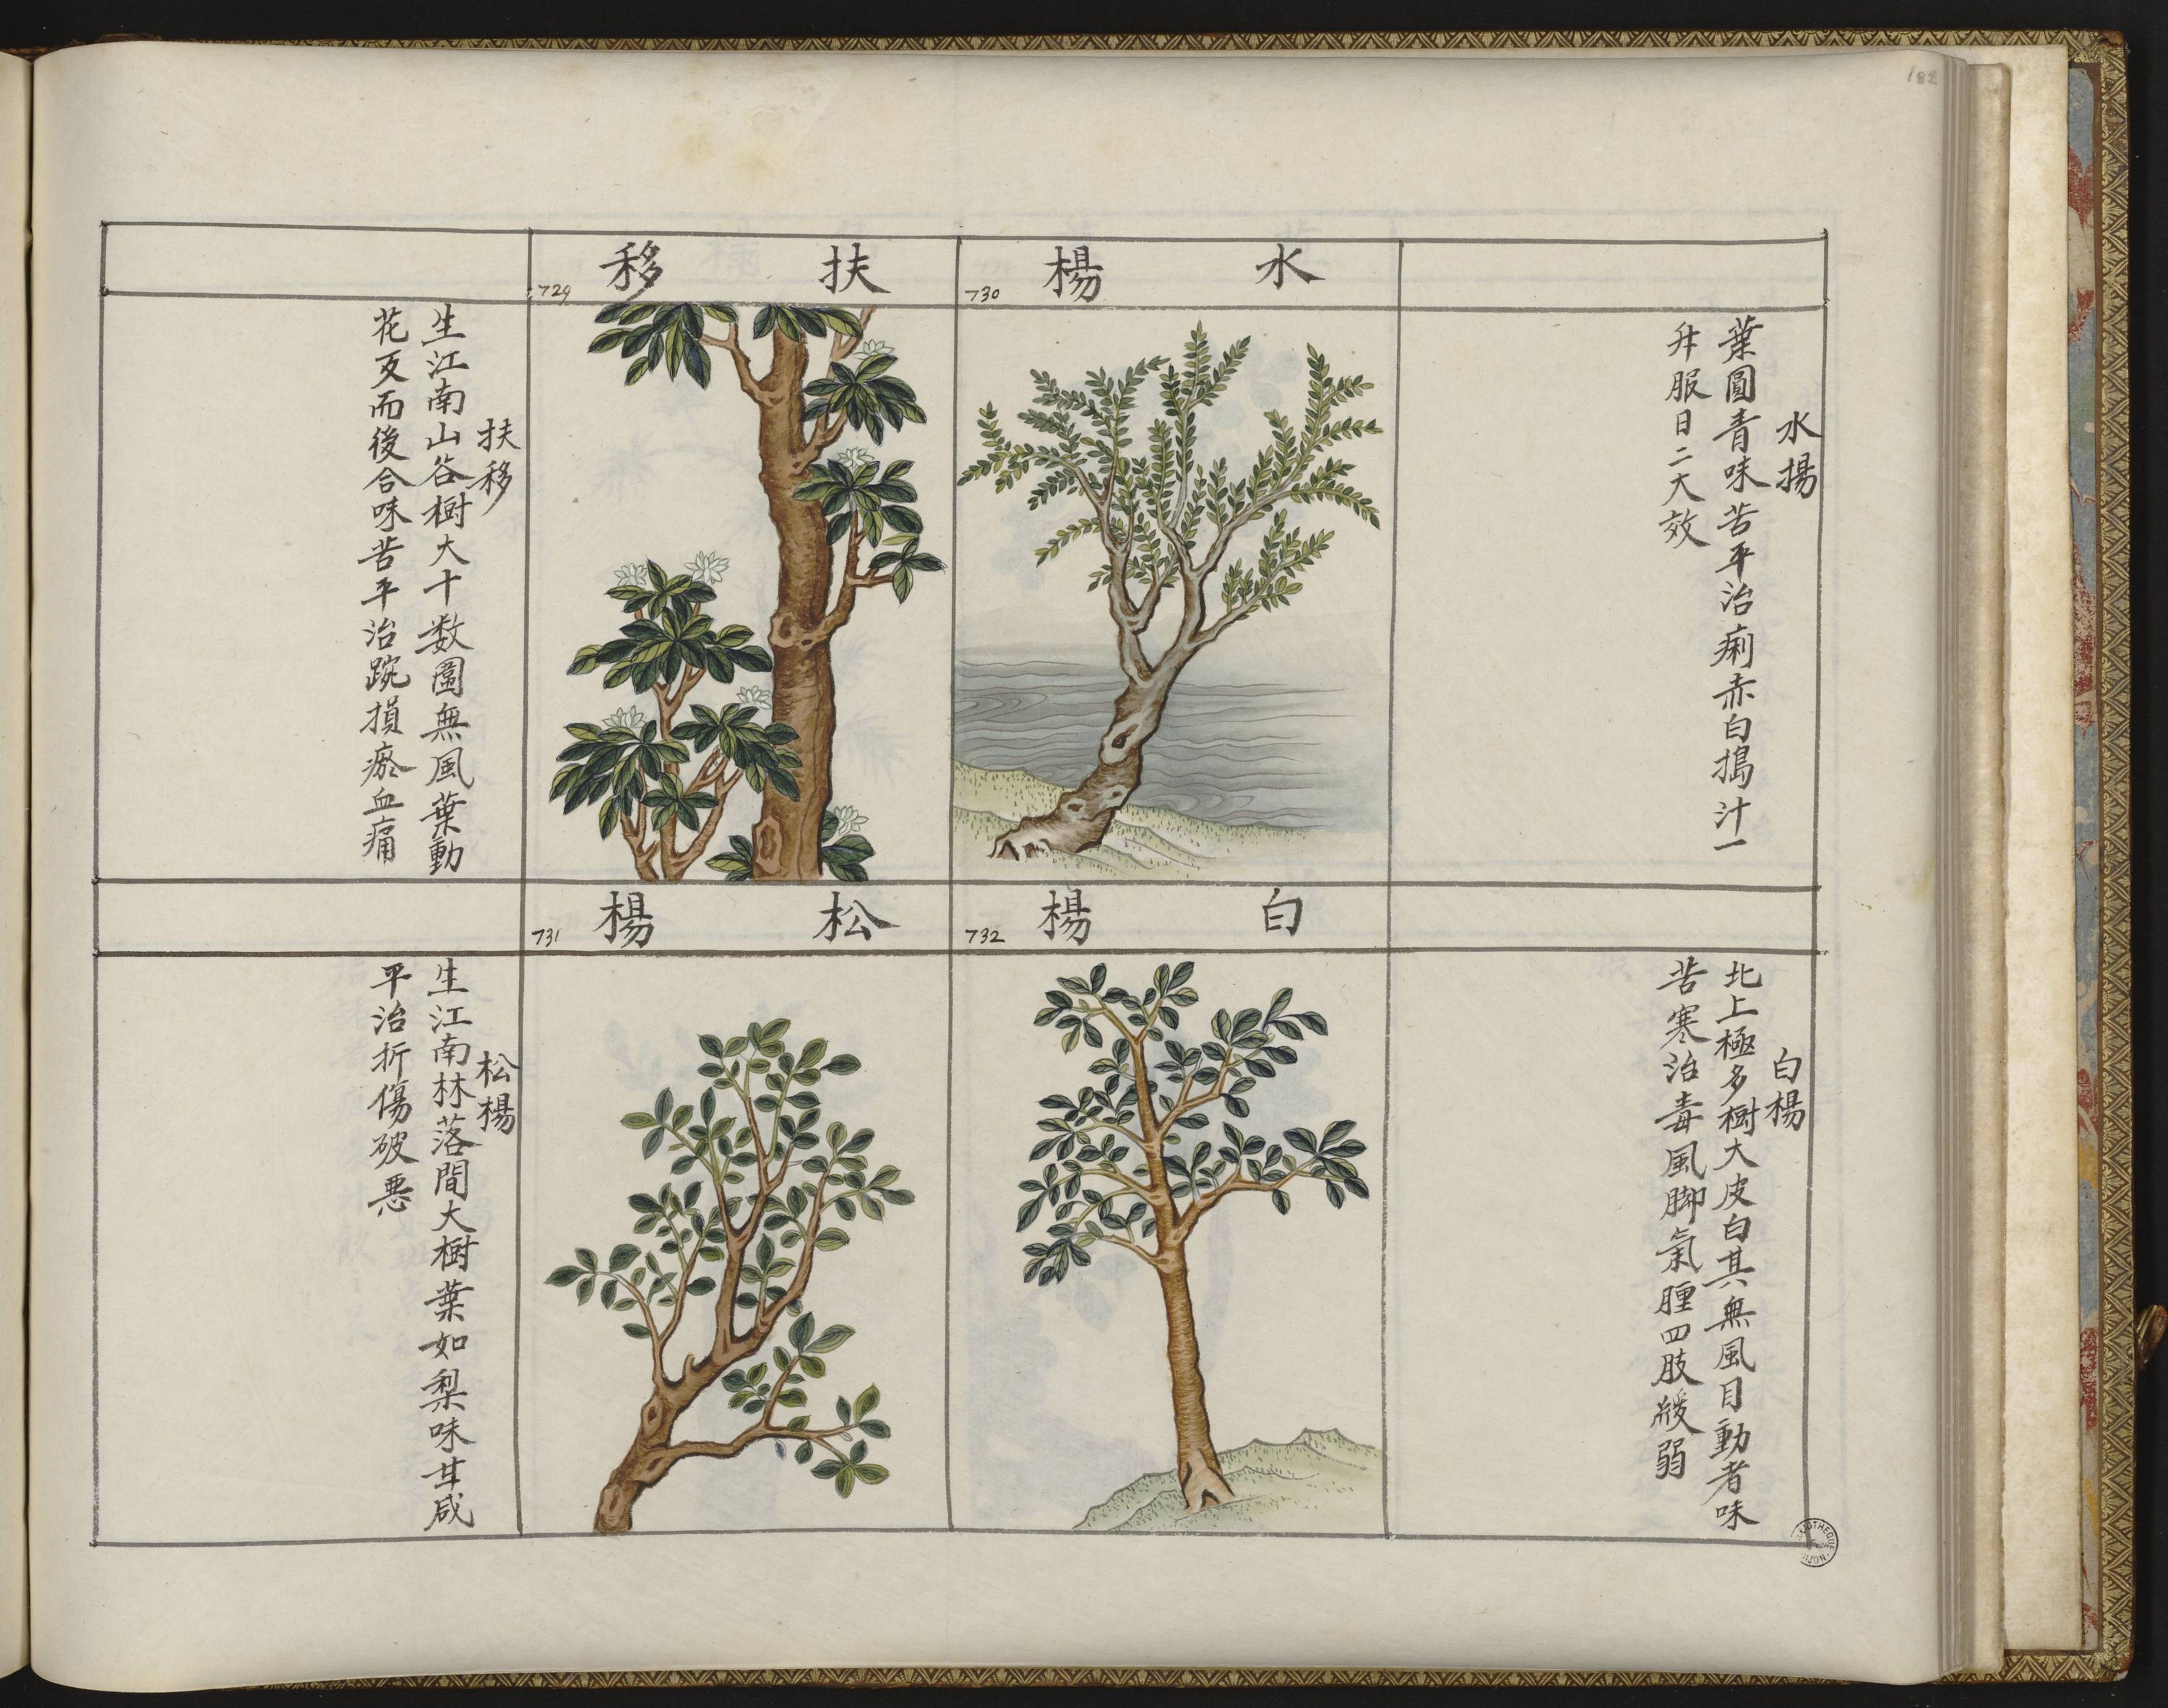 182
水楊
730
水揚
葉圓青味苦平治痢赤白搗汁一
升服日二大效
扶移
729
扶移
生江南山谷樹大十数圍無風葉動
花反而後合味苦平治踠損瘀血痛
白楊
732
白楊
北上極多樹大皮白其無風自動者味
苦寒治毒風脚氣腫四肢緩弱
松楊
731
松楊
生江南林落間大樹葉如梨味甘咸
平治折傷破惡